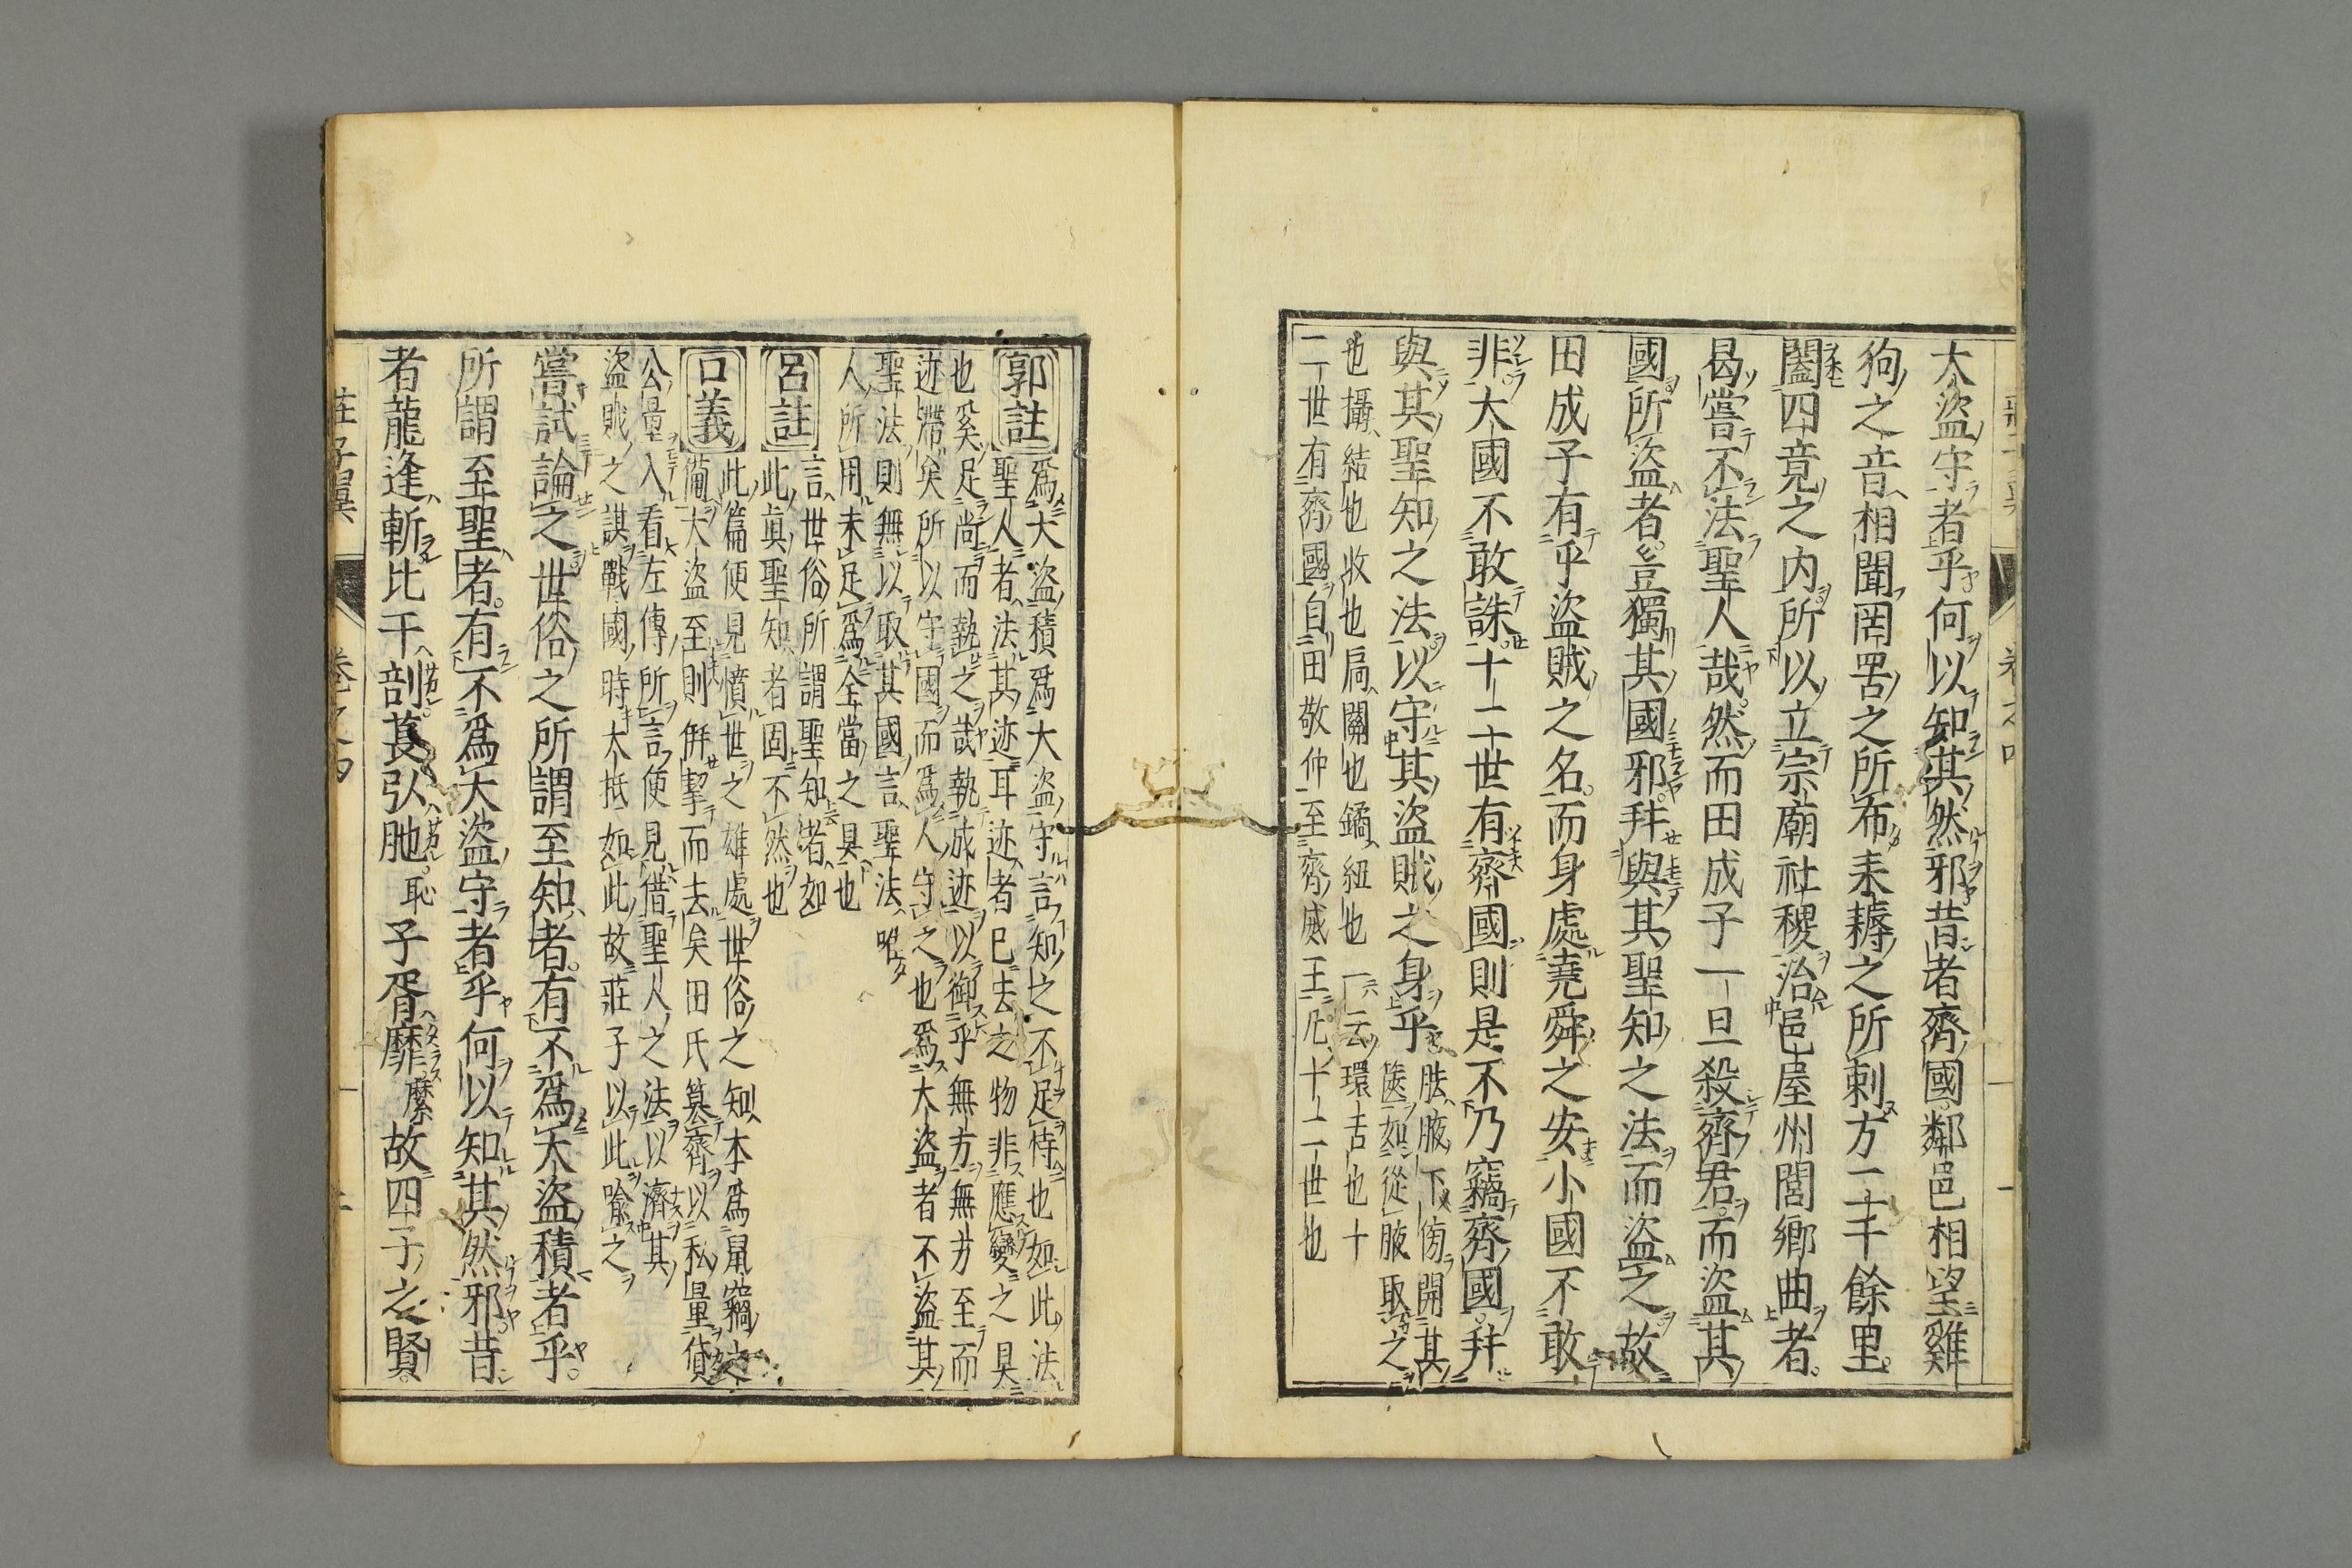 大盜守者乎何以知其然邪昔者齊國鄰邑相望雞
狗之音相聞罔罟之所布耒耨之所刺方二千餘里
闔四竟之内所以立宗廟社稷治邑屋州閭鄉曲者
曷嘗不法聖人哉然而田成子一旦殺齊君而盜其
國所盜者豈獨其國邪并與其聖知之法而盜之故
田成子有乎盜賊之名而身處堯舜之安小國不敢
非大國不敢誅十二世有齊國則是不乃竊齊國并
與其聖知之法以守其盜賊之身乎
胠腋下傍開其
篋如從腋取之
也攝結也收也扃關也鐍紐也一云環舌也十
二世有齊國自田敬仲至齊威王凡十二世也
郭註
爲大盜積爲大盜守言知之不足恃也如此法
聖人者法其迹耳迹者已去之物非應變之具
也奚足尚而執之哉執成迹以御乎無方無方至而
迹滯矣所以守國而爲人守之也爲大盜者不盜其
聖法則無以取其國言聖法唯
人所用未足爲全當之具也
呂註
言世俗所謂聖知者如
此眞聖知者固不然也
口義
此篇便見憤世之雄處世俗之知本爲鼠竊之
備大盜至則併挈而去矣田氏簒齊以私量貸
公量入看左傳所言便見借聖人之法以濟其
盜賊之謀戰國時大抵如此故莊子以此喩之
嘗試論之世俗之所謂至知者有不爲大盜積者乎
所謂至聖者有不爲大盜守者乎何以知其然邪昔
者龍逢斬比干剖萇弘胣恥子胥靡縻故四子之賢
莊子翼 卷之四